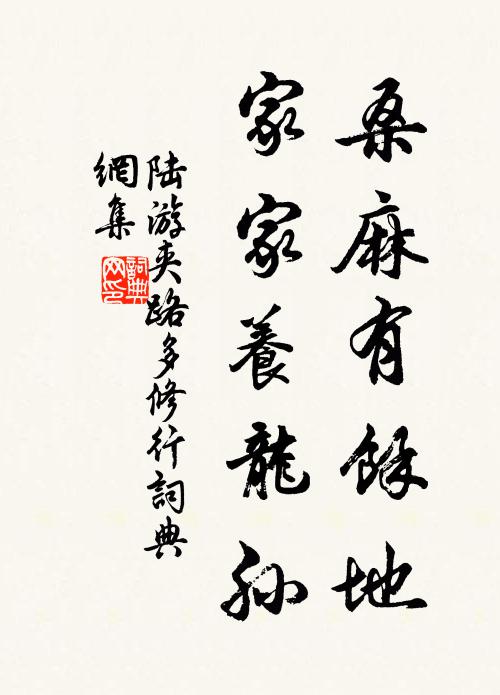 桑麻有餘地
家家養龍孙
陆游夹路多修行詞典
網集
詞典网印